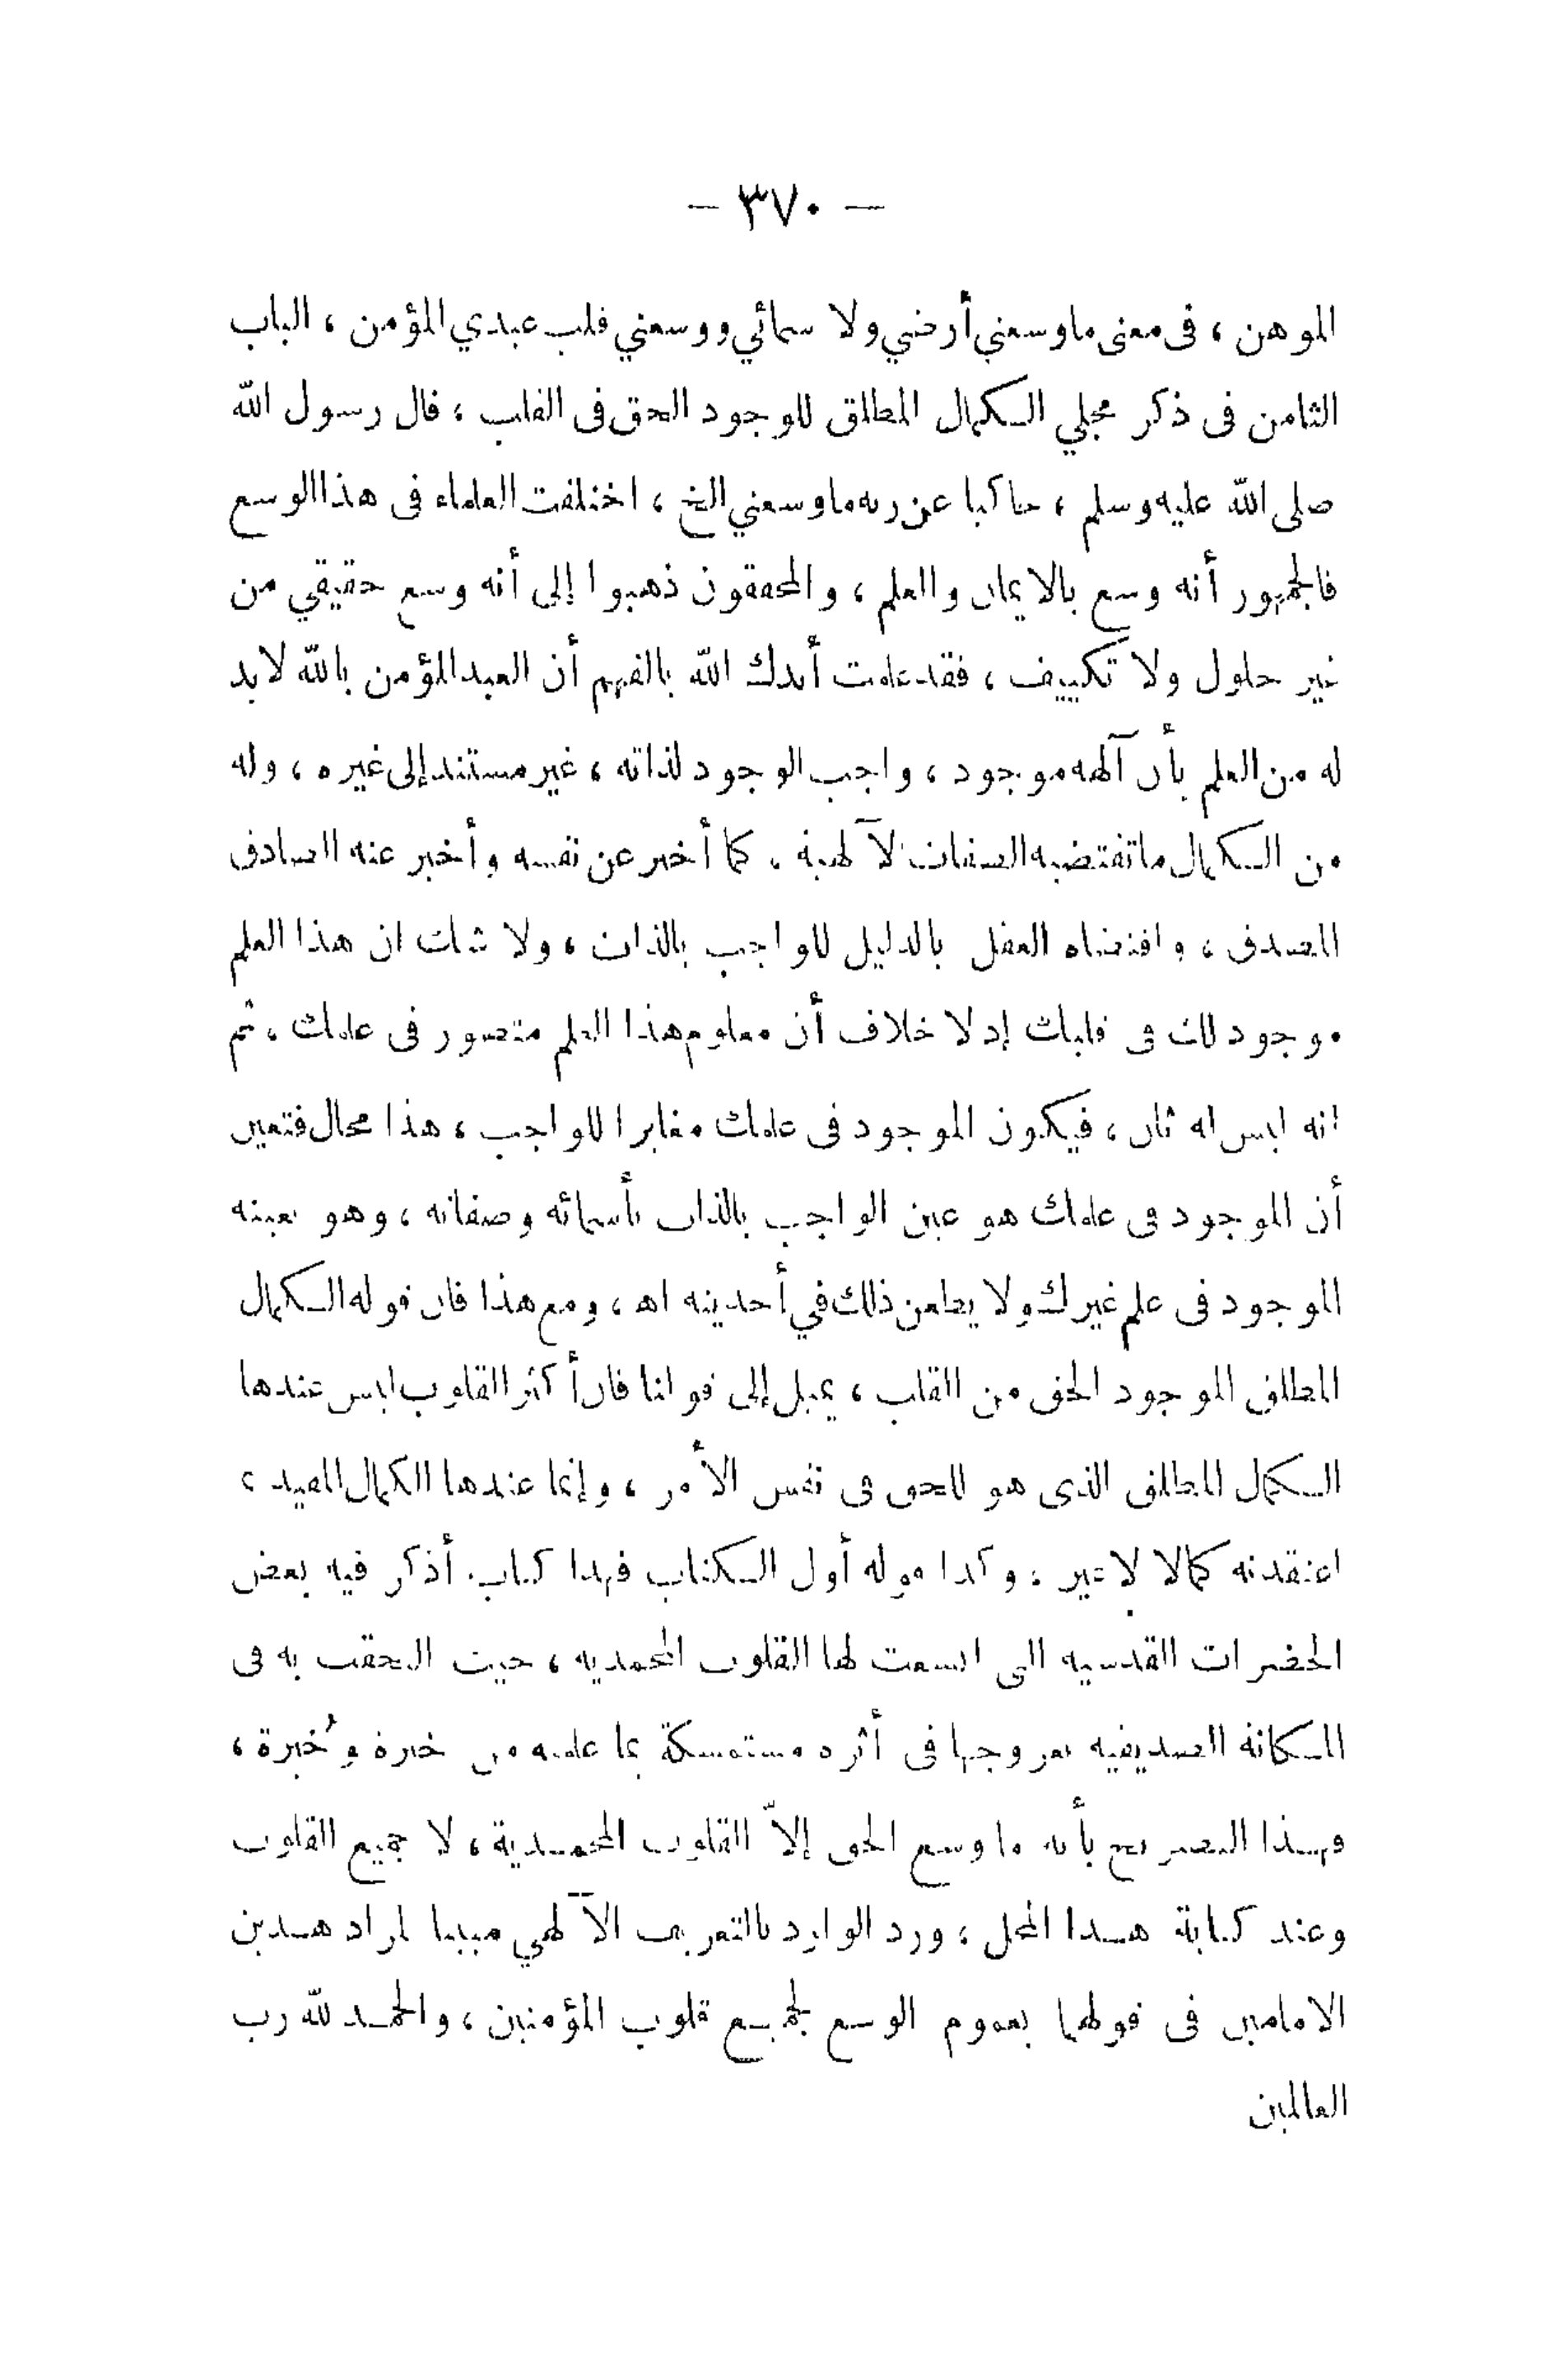 – ٣٧٠ –
الموهن ، فى معنى ما وسعني أرضي ولا سمائي ووسعني قلب عبدي المؤمن ، الباب
الثامن فى ذكر مجلي الكمال المطلق للوجود الحق فى القلب ، قال رسول الله
صلى الله عليه وسلم ، حاكيا عن ربه ما وسعني الخ ، اختلفت العلماء فى هذا الوسع
فالجمهور أنه وسع بالايمان والعلم ، والمحققون ذهبوا إلى أنه وسع حقيقي من
غير حلول ولا تكييف ، فقد علمت أيدك الله بالفهم أن العبد المؤمن بالله لا بد
له من العلم بأن آلهه موجود ، واجب الوجود لذاته ، غير مستند إلى غيره ، وله
من الكمال ما تقتضيه الصفات الآلهية ، كما أخبر عن نفسه وأخبر عنه الصادق
المصدق ، واقتضاه العقل بالدليل للواجب بالذات ، ولا شك ان هذا العلم
موجود لك فى قلبك إذ لا خلاف أن معلوم هذا العلم متصور فى علمك ، ثم
انه ليس له ثان ، فيكون الموجود فى علمك مغايرا للواجب ، هذا محال فتعين
أن الموجود فى علمك هو عين الواجب بالذات بأسمائه وصفاته ، وهو بعينه
الموجود فى علم غيرك ولا يطعن ذلك في أحديته اه ، ومع هذا فان قوله الكمال
المطلق الموجود الحق من القلب ، يميل إلى قولنا فان أكثر القلوب ليس عندها
الكمال المطلق الذى هو للحق فى نفس الأمر ، وإنما عندها الكمال المقيد ،
اعتقدته كمالا لا غير ، وكذا قوله أول الكتاب فهذا كتاب أذكر فيه بعض
الحضرات القدسيه التى اتسعت لها القلوب المحمديه ، حيث التحقت به فى
المكانة الصديقيه بعروجها فى أثره مستمسكة بما علمه من خبرة وخُبرة ،
فهذا التصريح بأنه ما وسع الحق إلاّ القلوب المحمدية ، لا جميع القلوب
وعند كتابة هذا المحل ، ورد الوارد بالتعريف الآلهي مبينا لمراد هذين
الامامين فى قولهما بعموم الوسع لجميع قلوب المؤمنين ، والحمد لله رب
العالمين